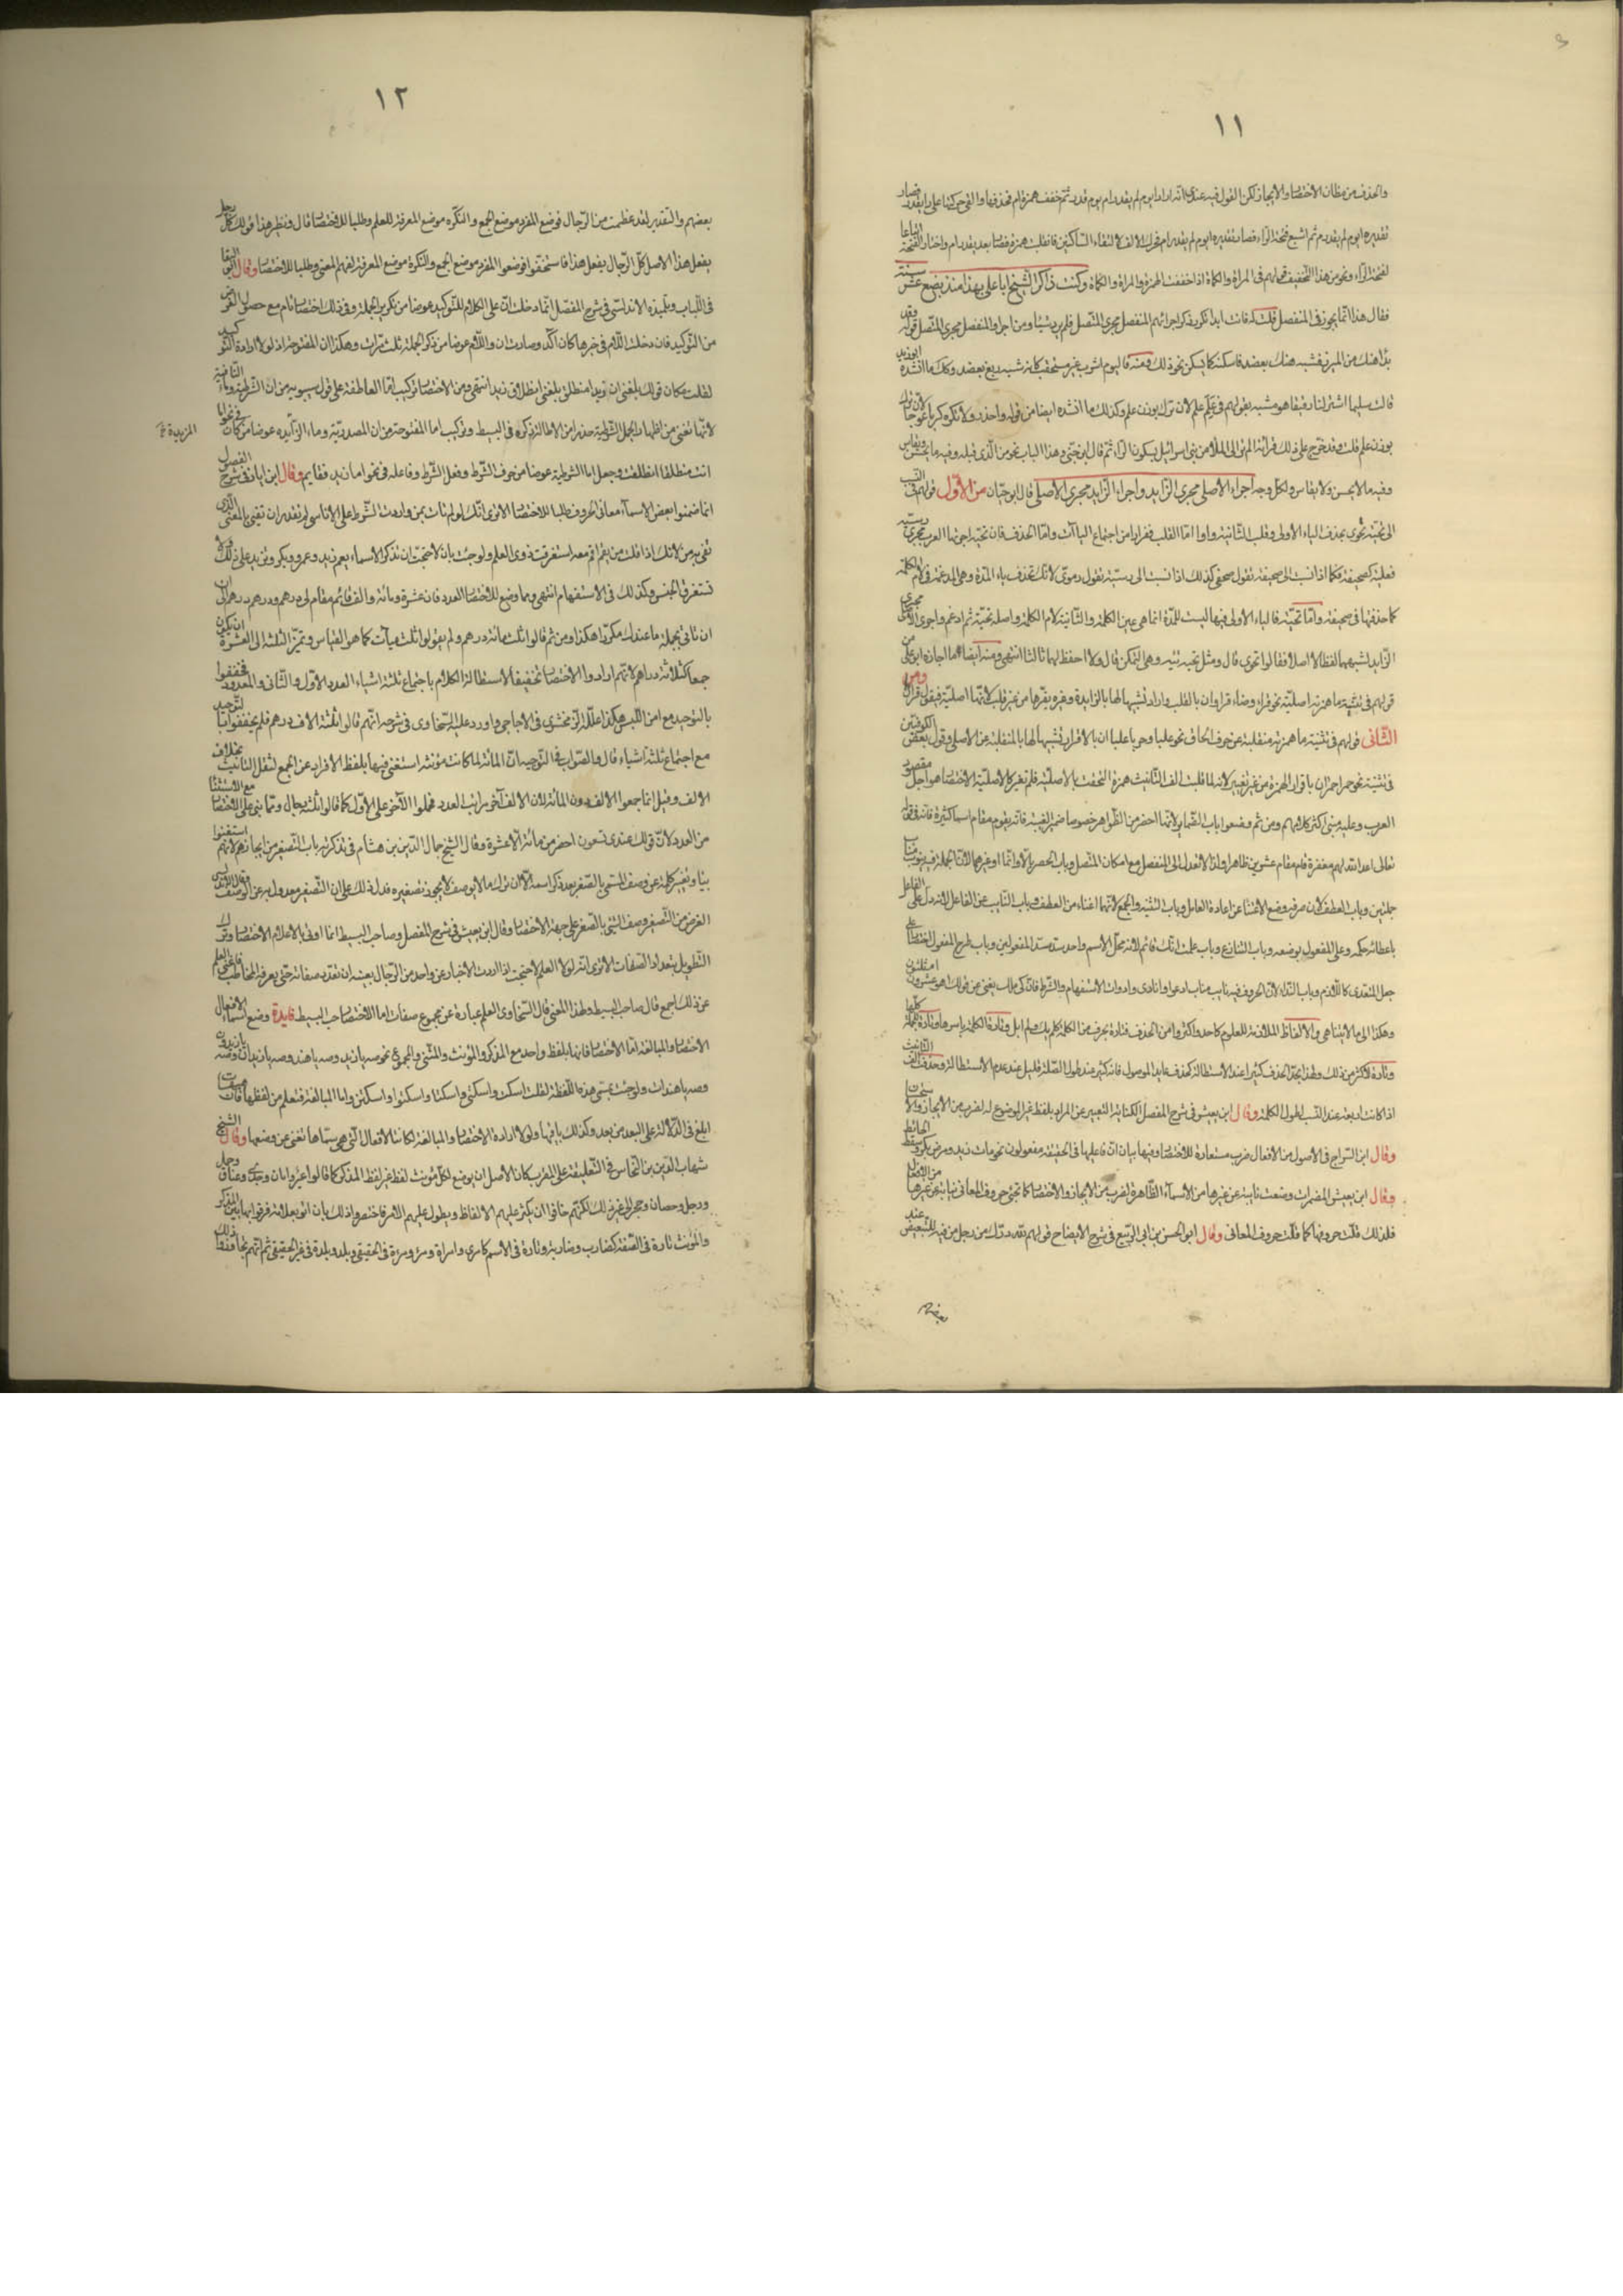 ١١
والحذف من مظان الاختصار والايجاز لكن القول فيه عندى انه اراد ايوم لم يقدر ام يوم قدر ثم خفف همزة ام فحذفها والقى حركتها على راء يقدر فصار
تقديره ايوم لم يقدرم ثم اشبع فتحة الراء فصار تقديره ايوم لم يقدرام فحرك الالف لالتقاء الساكنين فانقلبت همزة فصار يقدرأم واختار الفتحة اتباعا
لفتحة الراء ونحو من هذا التخفيف قولهم فى المرأة والكمأة اذا خففت الهمزة المراة والكماة وكنت ذاكرا الشيخ ابا على بهذا منذ بضع عشرة سنة
فقال هذا انما يجوز فى المنفصل قلت له فانت ابدا تكرر ذكر اجرائهم المنفصل مجرى المتصل فلم يرد شيئا ومن اجراء المنفصل مجرى المتصل قوله وقد
بدا هنك من المئزر فشبه هنك بعضد فاسكنه كما يسكن نحو ذلك ومنه فاليوم اشرب غير مستحقب كانه شبه ربغ بعضد وكذلك ما انشده ابو زيد
قالت سليمى اشتر لنا دقيقا هو مشبه بقولهم فى علم علم لان ترل بوزن علم وكذلك ما انشده ايضا من قوله واحذر ولا تكثر كريا اعوجا لان ترك
بوزن علم قلت وقد خرج على ذلك قراءة الم تر الى الملأ من بنى اسرائيل بسكون الراء ثم قال ابن جنى وهذا الباب نحو من الذى قبله وفيه ما يحسن ويقاس
وفيه ما لا يحسن ولا يقاس ولكل وجه اجراء الاصلى مجرى الزايد واجراء الزايد مجرى الاصلى قال ابو حيان من الاول قولهم فى النسب
الى تحية تحوى بحذف الياء الاولى وقلب الثانية واوا اما القلب ففرارا من اجتماع الياآت واما الحذف فان تحية اجرتها العرب مجرى رمية
فعيلة كصحيفة فكما اذا نسبت الى صحيفة تقول صحفى كذلك اذا نسبت الى رمية تقول رموى لانك تحذف ياء المدة وهى المدغمة فى لام الكلمة
كما حذفتها فى صحيفة واما تحية فالياء الاولى فيها ليست للمدة انما هى عين الكلمة والثانية لام الكلمة واصله تحيية ثم ادغم واجرى الاصلى مجرى
الزايد لشبهها لفظا لا اصلا فقالوا تحوى قال ومثل تحية تئية وهى التمكن قال ولا احفظ لهما ثالثا انتهى ومنه ايضا ما اجازه ابو على من
قولهم فى تثنية ما همزته اصلية نحو قراء ووضاء قراوان بالقلب واوا تشبيها لها بالزايدة وغيره يقرها من غير قلب لانها اصلية فيقول قراان ومن
الثانى قولهم فى تثنية ما همزته منقلبة عن حرف الحاق نحو علبا وحربا علباان بالاقرار تشبيها لها بالمنقلبة عن الاصلى وقول بعض الكوفيين
فى تثنية نحو حمرا حمراان باقرار الهمزة من غير تغيير لانه لما قلبت الف التانيث همزة التحقت بالاصلية فلم تغير كالاصلية الاختصار هو اجل مقصود
العرب وعليه مبنى اكثر كلامهم ومن ثم وضعوا باب الضمائر لانها اخصر من الظواهر خصوصا ضمير الغيبة فانه يقوم مقام اسماء كثيرة فانه فى قوله
تعالى اعد الله لهم مغفرة قام مقام عشرين ظاهرا ولذا لا يعدل الى المنفصل مع امكان المتصل وباب الحصر بالا وانما او غيرهما لان الجملة فيه تنوب مناب
جملتين وباب العطف لان حروفه وضعت للاغناء عن اعادة العامل وباب التثنية والجمع لانهما اغناء من العطف وباب النايب عن الفاعل لانه دل على الفاعل
باعطائه حكمه وعلى المفعول بوضعه وباب التنازع وباب علمت انك قائم لانه محل لاسم واحد سد مسد المفعولين وباب طرح المفعول اختصارا على
جعل المتعدى كاللازم وباب النداء لان الحروف فيه نايب مناب ادعو او انادى وادوات الاستفهام والشرط فان كم مالك يغنى عن قولك اهو عشرون ام ثلثون
وهكذا الى ما لا يتناهى والالفاظ الملازمة للعموم كاحد واكثروا من الحذف فتارة بحرف من الكلمة كلم يك ولم ابل وتارة للكلمة باسرها وتارة للجملة كلها
وتارة لاكثر من ذلك ولهذا تجد الحذف كثيرا عند الاستطالة كحذف عايد الموصول فانه كثير عند طول الصلة قليل عند عدم الاستطالة وحذفت الف التانيث
اذا كانت رابعة عند النسب لطول الكلمة وقال ابن يعيش فى شرح المفصل الكناية التعبير عن المراد بلفظ غير الموضوع له لضرب من الايجاز والاستحسان
وقال ابن السراج فى الاصول من الافعال ضرب مستعارة للاختصار وفيها بيان ان فاعليها فى الحقيقة مفعولون نحو مات زيد ومرض بكر وسقط الحائط
وقال ابن يعيش المضمرات وضعت نايبة عن غيرها من الاسماء الظاهرة لضرب من الايجاز والاختصار كما تجئ حروف المعانى نايبة عن غيرها من الافعال
فلذلك قلت حروفها كما قلت حروف المعانى وقال ابو الحسن بن ابى الربيع فى شرح الايضاح قولهم لله درك من رجل من فيه للتبعيض عند
بعضهم
١٢
بعضهم والتقدير لقد عظمت من الرجال فوضع المفرد موضع الجمع والنكرة موضع المعرفة للعلم وطلبا للاختصار قال ونظير هذا قولك كل رجل
يفعل هذا الاصل كل الرجال يفعل هذا فاستخفوا فوضعوا المفرد موضع الجمع والنكرة موضع المعرفة لفهم المعنى وطلبا للاختصار وقال ابو البقا
فى اللباب وتلميذه الاندلسى فى شرح المفصل انما دخلت ان على الكلام للتوكيد عوضا من تكرير الجملة وفى ذلك اختصار تام مع حصول الغرض
من التوكيد فان دخلت اللام فى خبرها كان آكد وصارت ان واللام عوضا من ذكر الجملة ثلث مرات وهكذا ان المفتوحة اذ لولا ارادة التوكيد
لقلت مكان قولك بلغنى ان زيدا منطلق بلغنى انطلاق زيد انتهى ومن الاختصار تركيب اما العاطفة على قول سيبويه من ان الشرطية وما النافية
لانها تغنى عن اظهار الجمل الشرطية حذرا من الاطالة ذكره فى البسيط وتركيب اما المفتوحة من ان المصدرية وما الزايدة عوضا من كان فى نحو اما
المزيدة خ
انت منطلقا انطلقت وجعل اما الشرطية عوضا من حرف الشرط وفعل الشرط وفاعله فى نحو اما زيد فقايم وقال ابن اياز فى شرح الفصول
انما ضمنوا بعض الاسماء معانى الحروف طلبا للاختصار الا ترى انك لو لم تات بمن واردت الشرط على الاناسى لم تقدر ان تفى بالمعنى الذى
تفى به من لانك اذا قلت من يقم اقم معه استغرقت ذوى العلم ولو جئت بان لاحتجت ان تذكر الاسماء ان يقم زيد وعمرو وبكر وتزيد على ذلك ولا
تستغرق الجنس وكذلك فى الاستفهام انتهى ومما وضع للاختصار العدد فان عشرة ومائة والف قائم مقام درهم ودرهم ودرهم الى ان
ان تاتى بجملة ما عندك مكررا هكذا ومن ثم قالوا ثلث مائة درهم ولم يقولوا ثلث ميآت كما هو القياس وتميز الثلثة الى العشرة ان يكون
جمعا كثلاثة دراهم لانهم ارادوا الاختصار تخفيفا لاستطالة الكلام باجتماع ثلثة اشياء العدد الاول والثانى والمعدود فخففوا
بالتوحيد مع امن اللبس هكذا علله الزمخشرى فى الاحاجى واورد عليه السخاوى فى شرحه انهم قالوا ثلثة الاف درهم فلم يخففوا بالتوحيد
مع اجتماع ثلثة اشياء قال والصواب فى التوجيه ان المائة لما كانت مؤنثة استغنى فيها بلفظ الافراد عن الجمع لثقل التانيث بخلاف
الالف وقيل انما جمعوا الالف دون المائة لان الالف آخر مراتب العدد فحملوا الآخر على الاول كما قالوا ثلثة رجال ومما بنى على الاختصار مع الاستثنا
من العدد لان قولك عندى تسعون اخصر من مائة الا عشرة وقال الشيخ جمال الدين بن هشام فى تذكرته باب التصغير من ايجازهم لانهم استغنوا
بيا وتغيير كلمة عن وصف المسمى بالصغر بعد ذكر اسمه الا ان ما لا يوصف لا يجوز تصغيره فدل ذلك على ان التصغير معدول به عن الوصف وقال الاندلسى
الغرض من التصغير وصف الشئ بالصغر على جهة الاختصار وقال ابن يعيش فى شرح المفصل وصاحب البسيط انما اتى بالاعلام للاختصار وترك
التطويل بتعداد الصفات الا ترى انه لولا العلم لاحتجت اذا اردت الاخبار عن واحد من الرجال بعينه ان تعدد صفاته حتى يعرفه المخاطب فاغنى العلم
عن ذلك اجمع قال صاحب البسيط ولهذا المعنى قال السخاوى العلم عبارة عن مجموع صفات اما الاختصار صاحب البسيط فايدة وضع اسماء الافعال
الاختصار والمبالغة اما الاختصار فانها بلفظ واحد مع المذكر والمؤنث والمثنى والمجموع نحو صه يا زيد وصه يا هند وصه يا زيدان وصه يا زيدون
وصه يا هندات ولو جئت بمسمى هذه اللفظة لقلت اسكت واسكتى واسكتا واسكتوا واسكتن واما المبالغة فتعلم من لفظها فان هيهات
ابلغ فى الدلالة على البعد من بعد وكذلك باقيها ولولا ارادة الاختصار والمبالغة لكانت الافعال التى هى مسماها تغنى عن وضعها وقال الشيخ
شهاب الدين بن النحاس فى التعليقة على المقرب كان الاصل ان يوضع لكل مؤنث لفظ غير لفظ المذكر كما قالوا عير واتان وجدى وعناق وحمل
ورجل وحصان وحجر الى غير ذلك لكنهم خافوا ان يكثر عليهم الالفاظ ويطول عليهم الامر فاختصروا ذلك بان اتوا بعلامة فرقوا بها بين المذكر
والمؤنث تارة فى الصفة كضارب وضاربة وتارة فى الاسم كامرئ وامراة ومرء ومرة فى الحقيقى وبلد وبلدة فى غير الحقيقى ثم انهم تجاوزوا ذلك